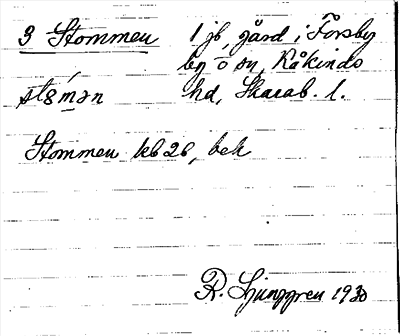 3 Stommen 1 jb, gård i Forsby
by o sn, Kåkinds
hd, Skarab. l.
Stommen kb 26, bek
R. Ljunggren 1930